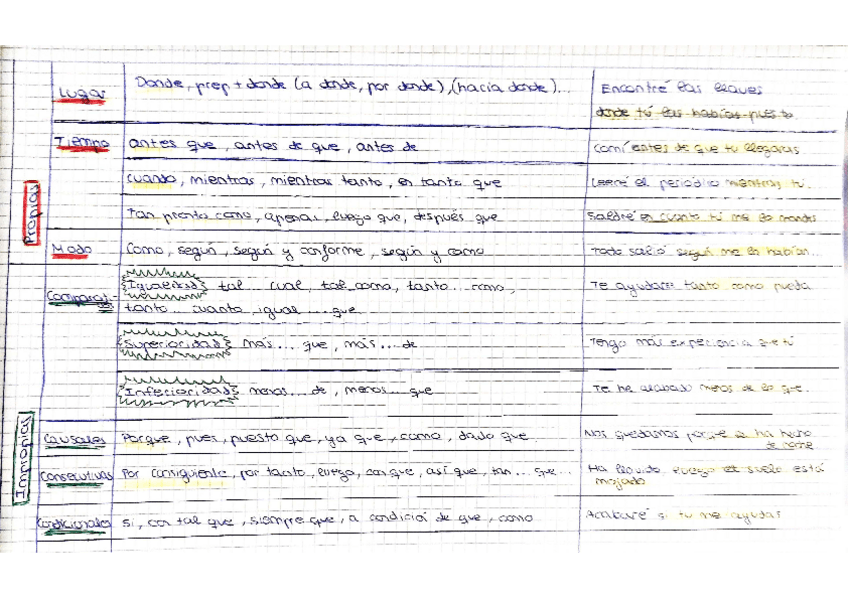 Lugar Donde, prep + donde (a donde, por donde), (hacia donde)... Encontré las llaves
donde tú las habías puesto
Tiempo antes que, antes de que, antes de Comí antes de que tu llegaras
cuando, mientras, mientras tanto, en tanto que Leeré el periódico mientras tú.
Propias
Tan pronto como, apenas, luego que, después que Saldré en cuanto tú me lo mandes
Modo Como, según, según y conforme, según y como Todo salió según me lo habían...
Comparat. Igualdad tal... cual, tal como, tanto... como, Te ayudaré tanto como pueda
tanto... cuanto, igual... que
Superioridad más... que, más... de Tengo más experiencia que tú
Inferioridad menos... de, menos... que Te he acabado menos de lo que.
Impropias
Causales Porque, pues, puesto que, ya que, como, dado que Nos quedamos porque se ha hecho
de noche
Consecutivas Por consiguiente, por tanto, luego, con que, así que, tan... que... Ha llovido luego el suelo está
mojado
Condicionales Si, con tal que, siempre que, a condició de que, como Acabaré si tu me ayudas